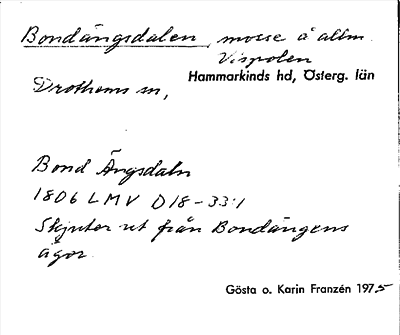 Bondängsdalen, mosse å allm.
Vispolen
Drothems sn,
Hammarkinds hd, Österg. län
Bond Ängsdaln
1806 LMV D18-33:1
Skjuter ut från Bondängens
ägor.
Gösta o. Karin Franzén 1975